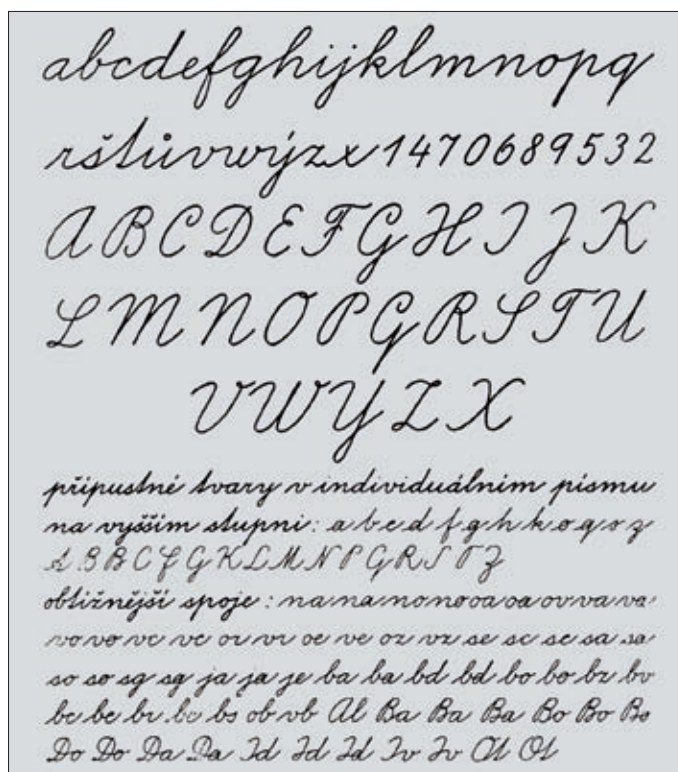 abcdefghijklmnopq
rštůvwýzx 1470689532
A B C D E F G H I J K
L M N O P Q R S T U
V W Y Z X
přípustné tvary v individuálním písmu
na vyšším stupni: a b c d f g h k o q s z
A B B C f G K L M N P G R S T Z
obtížnější spoje: na na no no oa oa ov va va
vo vo vc vc or vr oe ve oz vz se sc sc sa sa
so so sg sg ja ja je ba ba bd bd bo bo bz bv
bc be br bc bs ob vb Al Ba Ba Ba Bo Bo Bo
Do Do Da Da Id Id Id Iv Iv Ol Ol